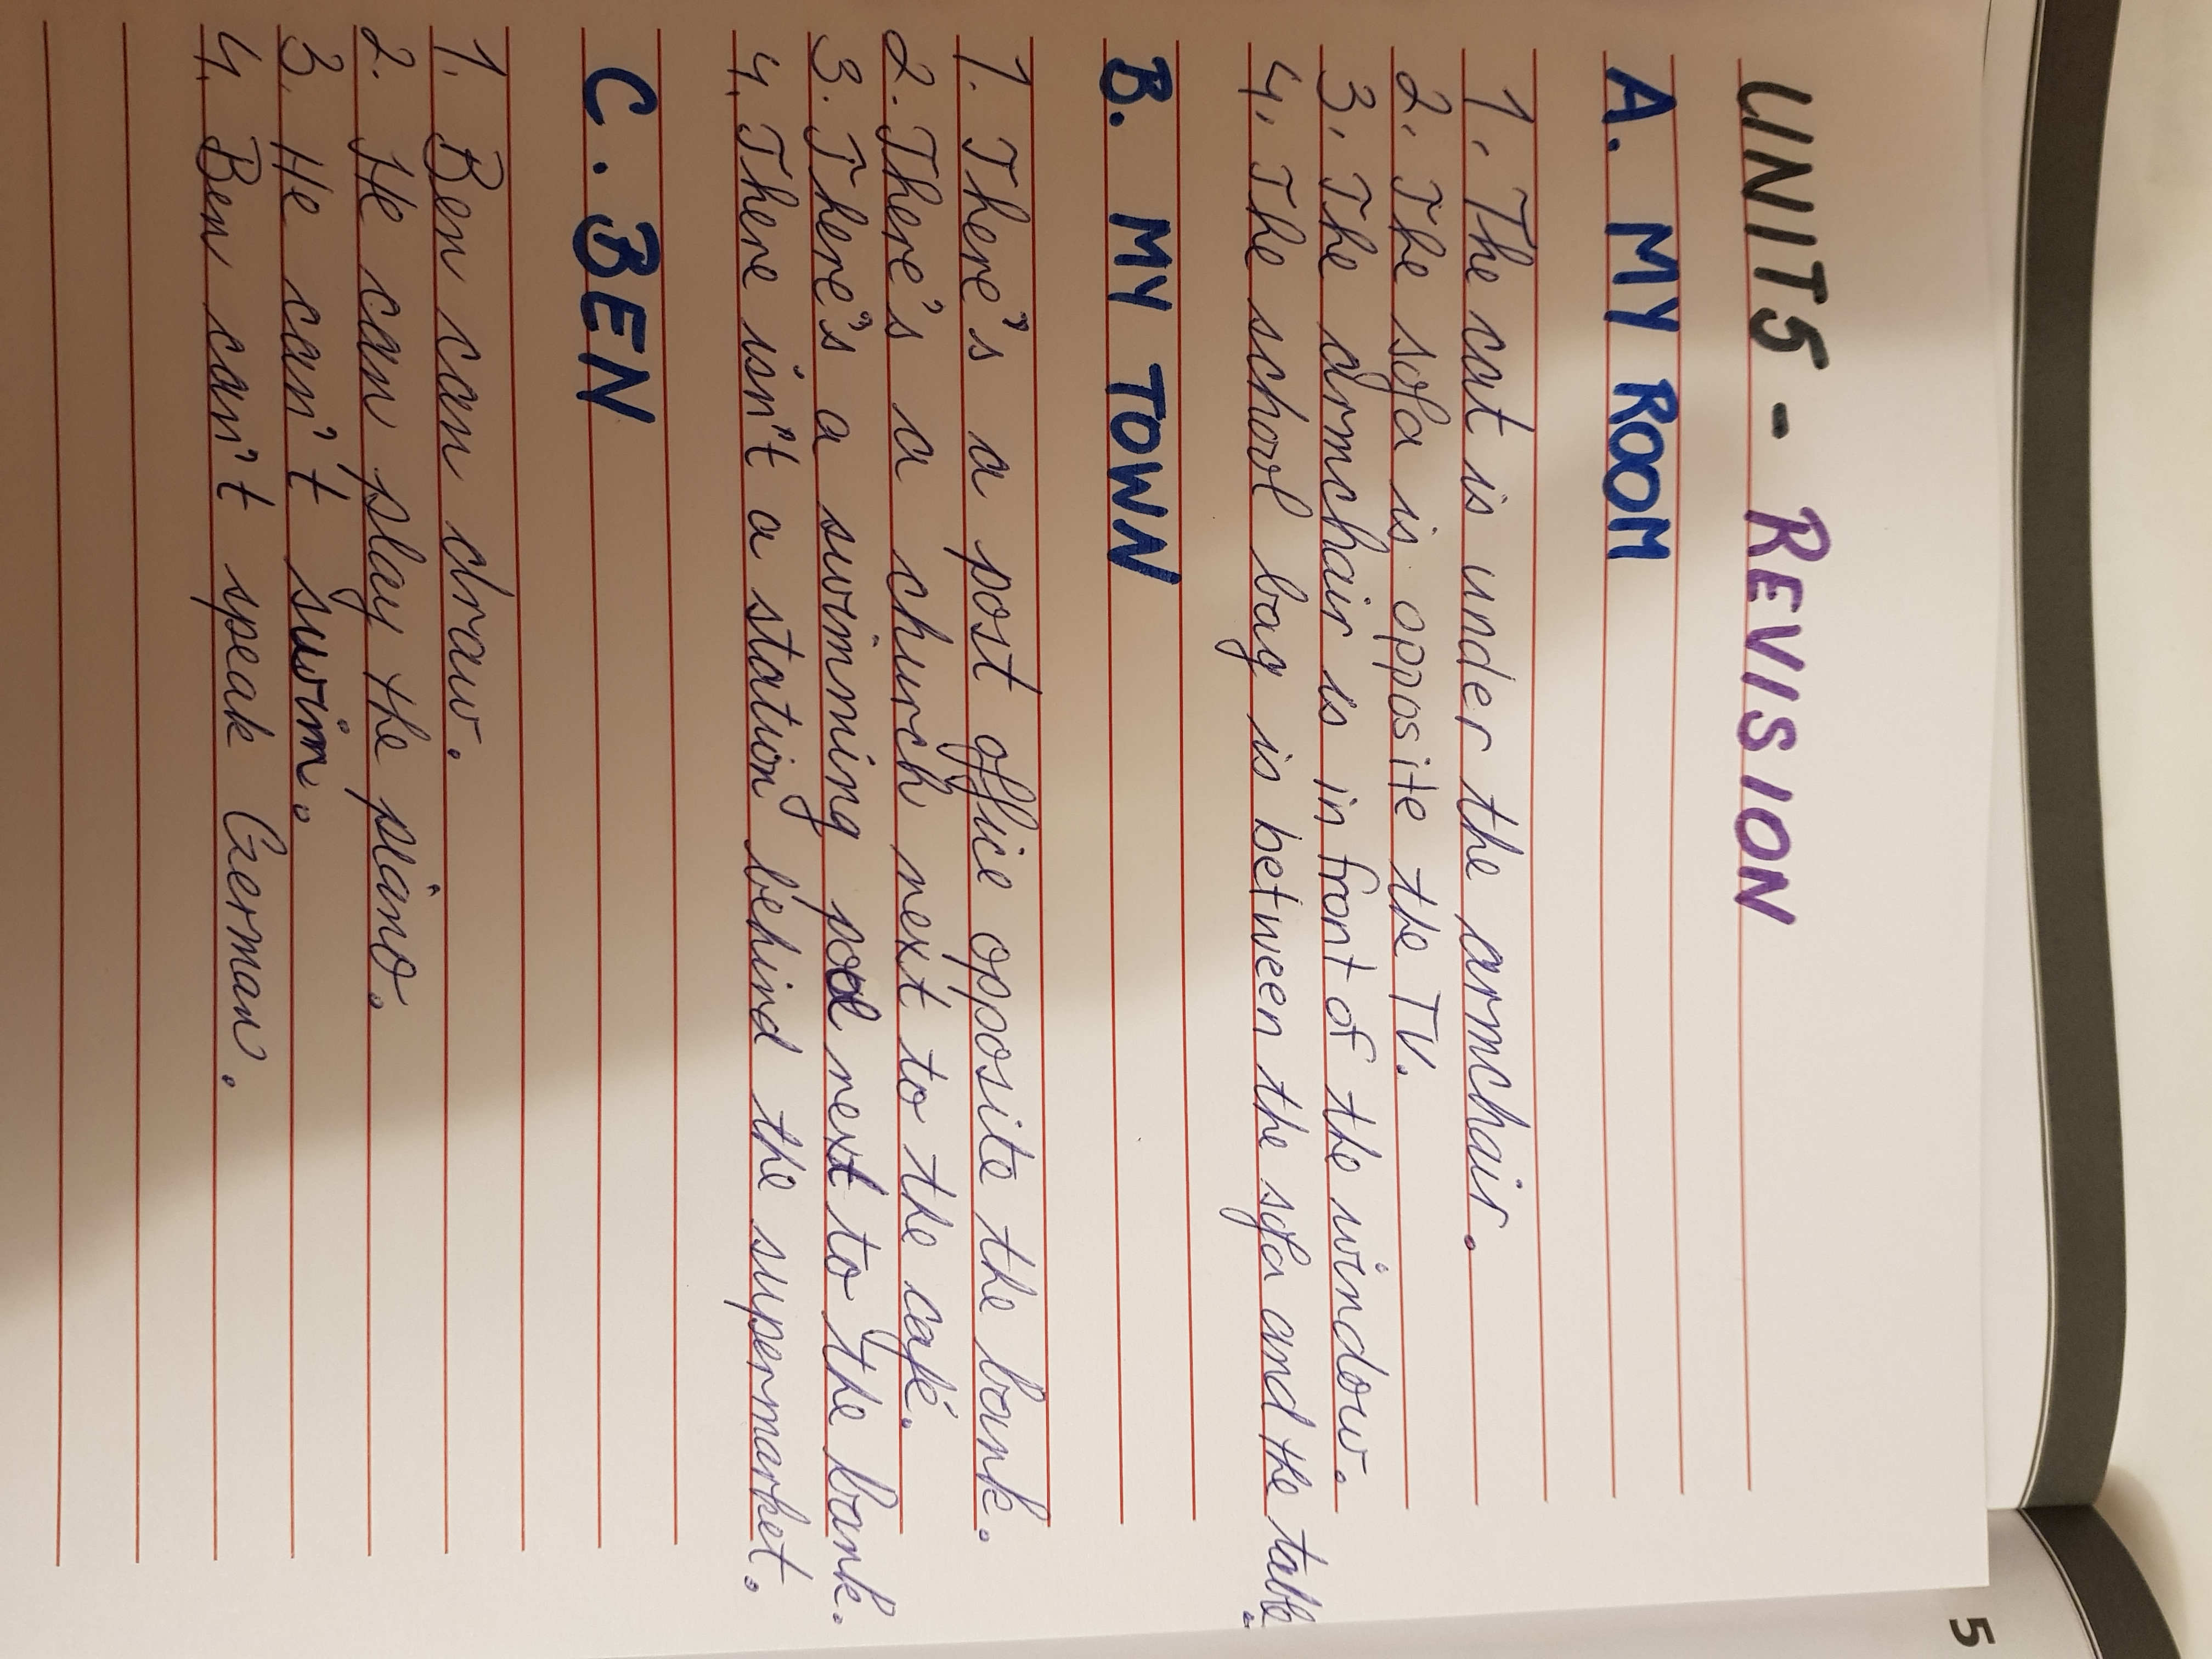 UNIT5 - REVISION
A. MY ROOM
1. The cat is under the armchair.
2. The sofa is opposite the TV.
3. The armchair is in front of the window.
4. The school bag is between the sofa and the table.
B. MY TOWN
1. There's a post office opposite the bank.
2. There's a church next to the café.
3. There's a swimming pool next to the bank.
4. There isn't a station behind the supermarket.
C. BEN
1. Ben can draw.
2. He can play the piano.
3. He can't swim.
4. Ben can't speak German.
5